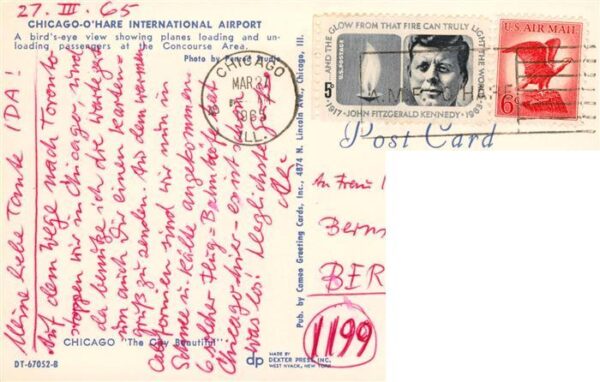 27. III. 65
CHICAGO-O'HARE INTERNATIONAL AIRPORT
A bird's-eye view showing planes loading and un-
loading passengers at the Concourse Area.
Photo by Penrod Studio
Meine liebe Tante IDA!
Auf dem Wege nach Toronto
stoppen wir in Chicago, und
da benutze ich die Wartezeit
um auch Dir einen Karten-
gruß zu senden. Aus dem warmen
Californien sind wir nun in
Schnee u. Kälte angekommen.
Chicago hier - es ist schon
was los! Herzlichst
CHICAGO "The City Beautiful"
DT-67052-B
Pub. by Cameo Greeting Cards, Inc., 4874 N. Lincoln Ave., Chicago, Ill.
MADE BY
dp DEXTER PRESS, INC.
WEST NYACK, NEW YORK
CHICAGO
MAR 27
1965
ILL.
AND THE GLOW FROM THAT FIRE CAN TRULY LIGHT THE WORLD
U.S. POSTAGE
5¢
1917 · JOHN FITZGERALD KENNEDY · 1963
U.S. AIR MAIL
6¢
Post Card
An Frau
Bern
BER
1199